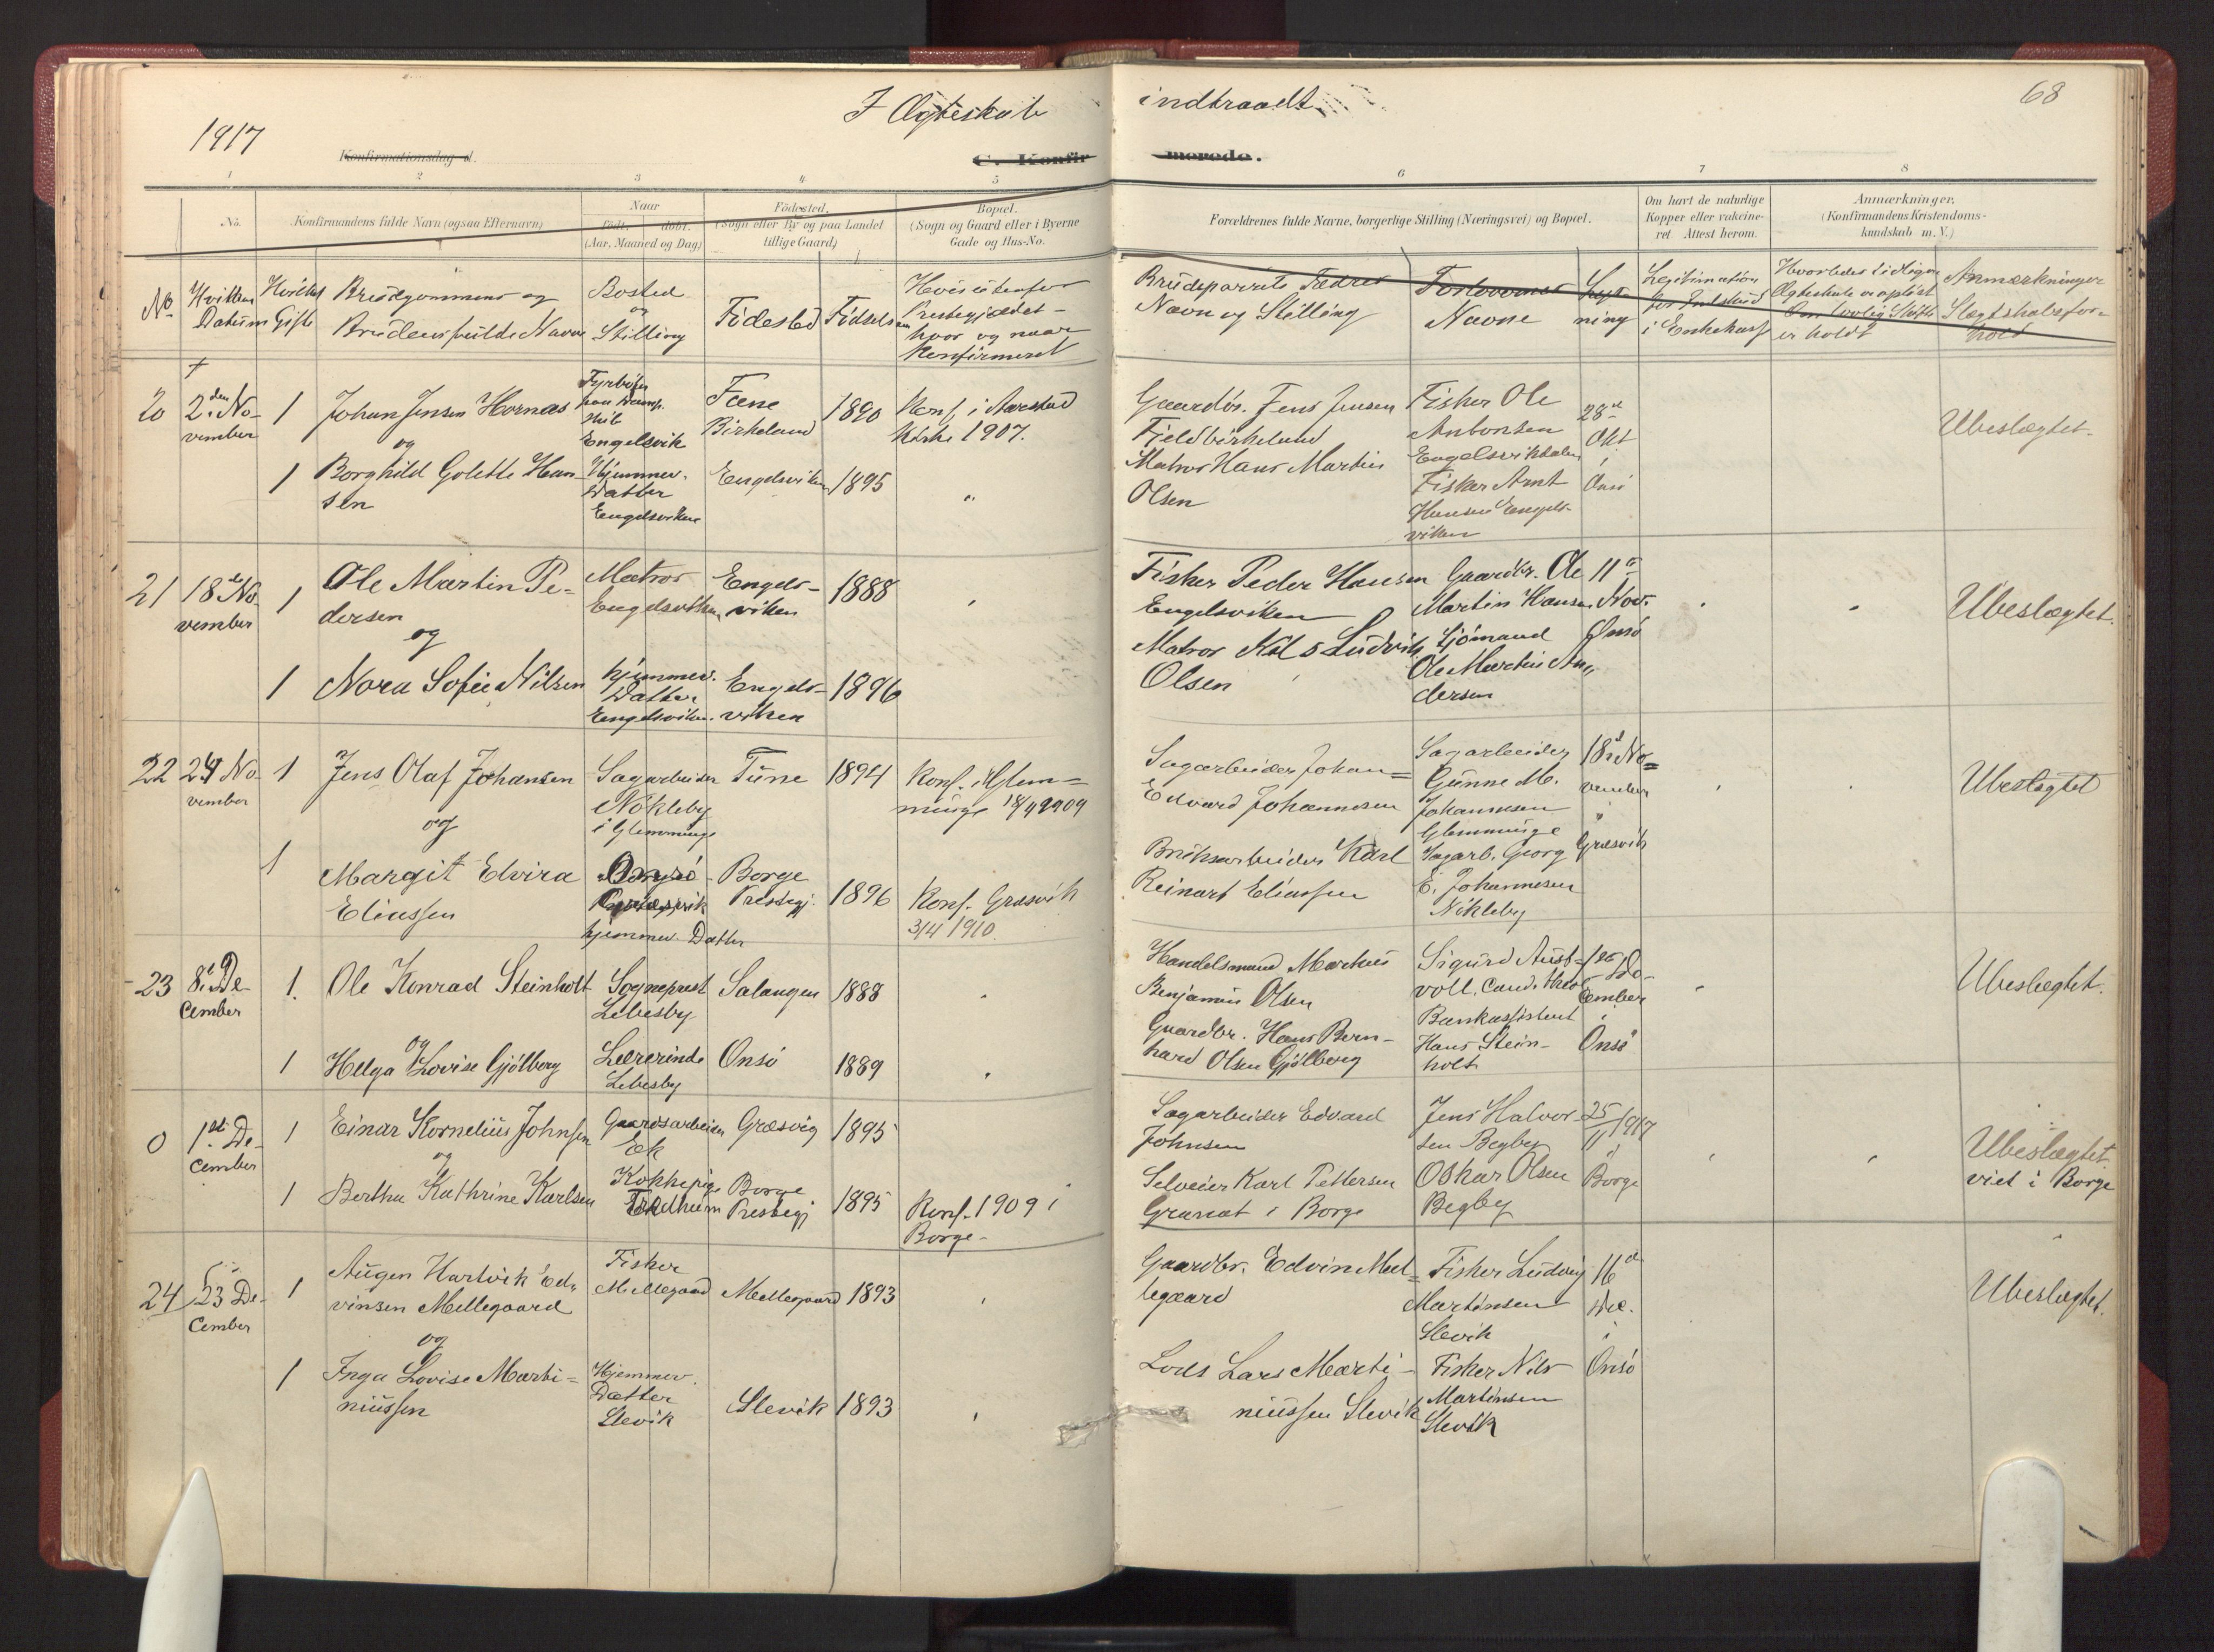 1917
I Ægteskab
indtraadt
68
Konfirmationsdag d.
C. Konfir
merede.
1
2
3
4
5
6
7
8
No.
Konfirmandens fulde Navn (ogsaa Efternavn)
Naar
født, døbt.
(Aar, Maaned og Dag)
Fødested.
(Sogn eller By og paa Landet
tillige Gaard)
Bopæl.
(Sogn og Gaard eller i Byerne
Gade og Hus-No.
Forældrenes fulde Navne, borgerlige Stilling (Næringsvei) og Bopæl.
Om havt de naturlige
Kopper eller vakcine-
ret Attest herom.
Anmærkninger.
(Konfirmandens Kristendoms-
kundskab m. V.)
No
Hvilken
Datum
Hvilket
Gifte
Brudgommens og
Brudens fulde Navn
Bosted
og
Stilling
Födested
Födselsaar
Hvis udenfor
Prestegjældet -
hvor og naar
Konfirmeret
Brudeparrets Fædres
Navn og Stilling
Forlovernes
Navne
Lys-
ning
Legitimation
i Enkekasse
Hvorledes tidligere
Ægteskab er oplöst
Om lovlig Skifte
er holdt
Anmærkninger
Slægtskabsfor-
hold
20
2den No-
vember
1
Johan Jensen Hornæs
og
Fyrböter
paa Damp-
skib
Engelsvik
Fane
Birkeland
1890
Konf. i Aarstad
Kirke 1907.
Gaardbr. Jens Jensen
Fjeldbirkeland
Fisker Ole
Antonsen
Engelsvikdalen
28de
Okt.
i
Onsö
Ubeslægtet.
1
Borghild Golette Han-
sen
Hjemmev.
Datter
Engelsviken
Engelsviken
1895
"
Matros Hans Martin
Olsen
Fisker Arnt
Hansen Engels-
viken
21
18de No-
vember
1
Ole Martin Pe-
dersen
og
Matros
Engelsviken
Engels-
viken
1888
Fisker Peder Hansen
Engelsviken
Gaardbr. Ole
Martin Hansen
11te
Nov.
Onsö
Ubeslægtet.
1
Nora Sofie Nilsen
hjemmev.
Datter
Engelsviken.
Engels-
viken
1896
Matros Nils Ludvik
Olsen
Sjömand
Ole Martin An-
dersen
22
24 No-
vember
1
Jens Olaf Johansen
og
Sagarbeider
Nökleby
i Glemminge
Tune
1894
Konf. i Glem-
minge 18/4 1909
Sagarbeider Johan
Edvard Johannesen
Sagarbeider
Gunne M.
Johannesen
Glemminge
18de No-
vember
i
Græsvik
Ubeslægtet
1
Margit Elvira
Eliassen
Græsvik
hjemmev. Datter
Borge
Prestegj.
1896
Konf. Græsvik
3/4 1910.
Bruksarbeider Karl
Reinart Eliassen
Sagarb. Georg
E. Johannesen
Nökleby
23
8de De-
cember
1.
Ole Konrad Steinholt
og
Sogneprest
Lebesby
Salangen
1888
Handelsmand Markus
Benjamin Olsen
Sigurd Aust-
voll. Cand. theol
1ste De-
cember
i
Onsö
Ubeslægtet.
1
Helga Lovise Gjölberg
Lærerinde
Lebesby
Onsö
1889
Gaardbr. Hans Bern-
hard Olsen Gjölberg
Bankassistent
Hans Stein-
holt
0
1ste De-
cember
1
Einar Kornelius Johnsen
og
Gaardsarbeider
Ek
Græsvig
1895
Sagarbeider Edvard
Johnsen
Jens Halvor-
sen Begby
25/11 1917
i
Borge
Ubeslægtet
viet i Borge
1
Bertha Kathrine Karlsen
Kokkepige
Borge
Prestegj
1895
Konf. 1909 i
Borge-
Selveier Karl Pettersen
Granat i Borge
Oskar Olsen
Begby
24
23 De-
cember
1
Augen Hartvik Ed-
vinsen Mellegaard
og
Fisker
Mellegaard
Mellegaard
1893
Gaardbr. Edvin Mel-
legaard
Fisker Ludvig
Martinsen
Slevik
16de
Dec.
i
Onsö
Ubeslægtet.
1
Inga Lovise Marti-
niussen
Hjemmev.
Datter
Slevik
Slevik
1893
Lods Lars Marti-
niussen Slevik
Fisker Nils
Martinsen
Slevik